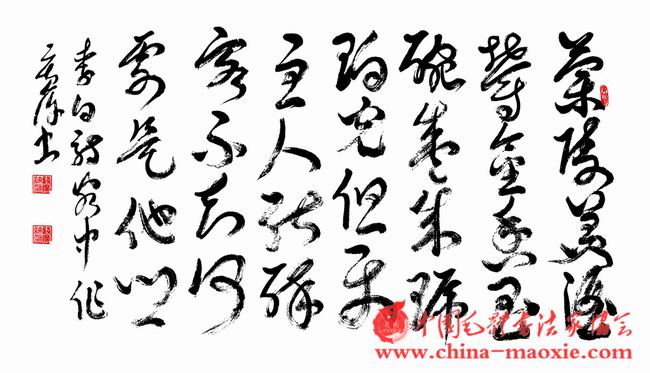 蘭陵美酒
鬱金香玉
碗盛来琥
珀光但使
主人能醉
客不知何
處是他鄉
李白詩客中作
书
中国毛體书法家协会
www.china-maoxie.com